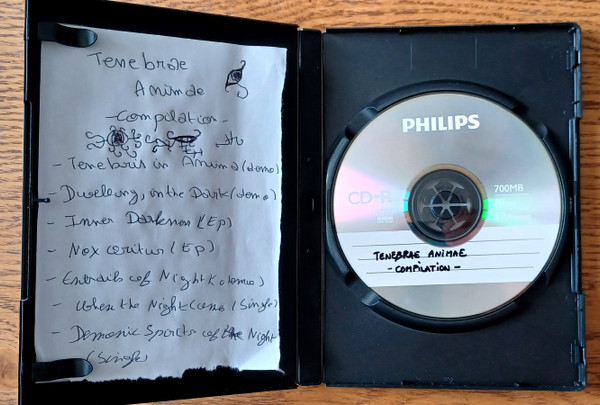 Tenebrae
Animae
-Compilation-
- Tenebris in Anima (demo)
- Dwelling in the Dark (demo)
- Inner Darkness (Ep)
- Nox (Ep)
- Entrails of Night (demo)
- When the Night (Single)
- Demonic Spirits of the Night
(Single)
PHILIPS
CD-R
700MB
TENEBRAE ANIMAE
- COMPILATION -